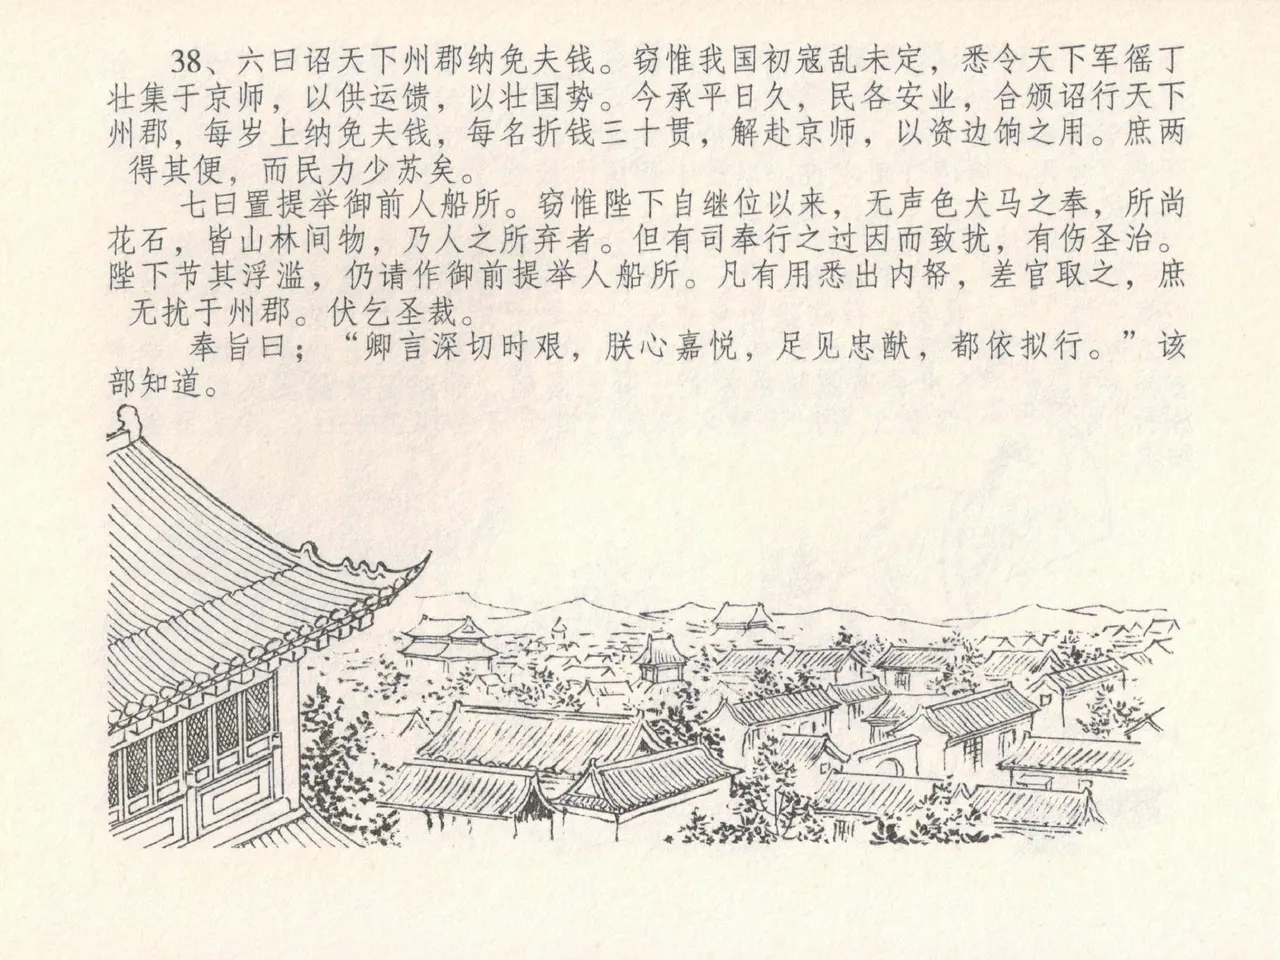 38、六曰诏天下州郡纳免夫钱。窃惟我国初寇乱未定，悉令天下军徭丁
壮集于京师，以供运馈，以壮国势。今承平日久，民各安业，合颁诏行天下
州郡，每岁上纳免夫钱，每名折钱三十贯，解赴京师，以资边饷之用。庶两
得其便，而民力少苏矣。
七曰置提举御前人船所。窃惟陛下自继位以来，无声色犬马之奉，所尚
花石，皆山林间物，乃人之所弃者。但有司奉行之过因而致扰，有伤圣治。
陛下节其浮滥，仍请作御前提举人船所。凡有用悉出内帑，差官取之，庶
无扰于州郡。伏乞圣裁。
奉旨曰；“卿言深切时艰，朕心嘉悦，足见忠猷，都依拟行。”该
部知道。